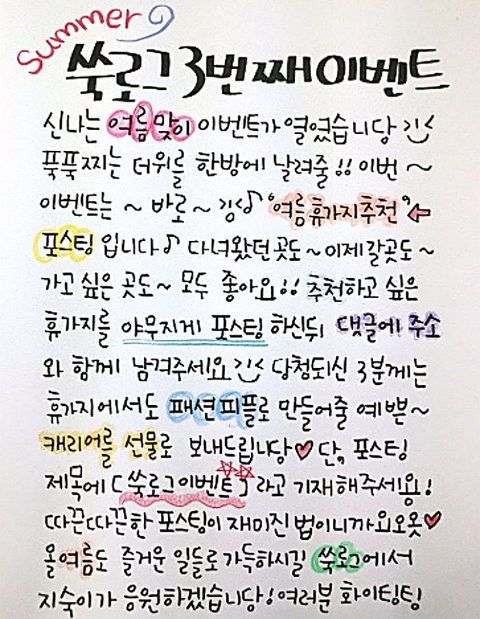 Summer
쑥로그 3번째 이벤트
신나는 여름맞이 이벤트가 열였습니당 >.<
푹푹 찌는 더위를 한방에 날려줄!! 이번 ~
이벤트는 ~ 바로 ~ "여름휴가지추천"
포스팅 입니다♪ 다녀왔던 곳도 ~ 이제 갈곳도 ~
가고 싶은 곳도 ~ 모두 좋아요!! 추천하고 싶은
휴가지를 야무지게 포스팅 하신뒤 댓글에 주소
와 함께 남겨주세요 >.< 당첨되신 3분께는
휴가지에서도 패션피플로 만들어줄 예쁜 ~
캐리어를 선물로 보내드립니당♥ 단, 포스팅
제목에 「쑥로그이벤트」라고 기재해주세용!
따끈따끈한 포스팅이 재미진 법이니까요오옷♥
올여름도 즐거운 일들로 가득하시길 쑥로그에서
지숙이가 응원하겠습니당! 여러분 화이팅팅